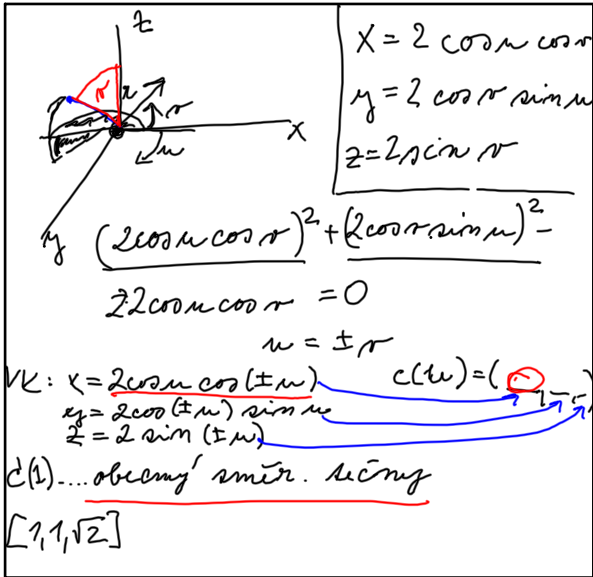 z
x = 2 cos u cos v
y = 2 cos v sin u
z = 2 sin v
v r v
x
u
y
(2 cos u cos v)² + (2 cos v sin u)² -
2·2 cos u cos v = 0
u = ± v
VK: x = 2 cos u cos (± u)
c(u) = ( , - , - )
y = 2 cos (± u) sin u
z = 2 sin (± u)
ċ(1) .... obecný směr. sečny
[1, 1, √2]